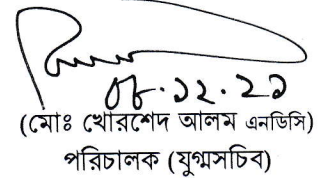 ০৮.১২.২১
(মোঃ খোরশেদ আলম এনডিসি)
পরিচালক (যুগ্মসচিব)